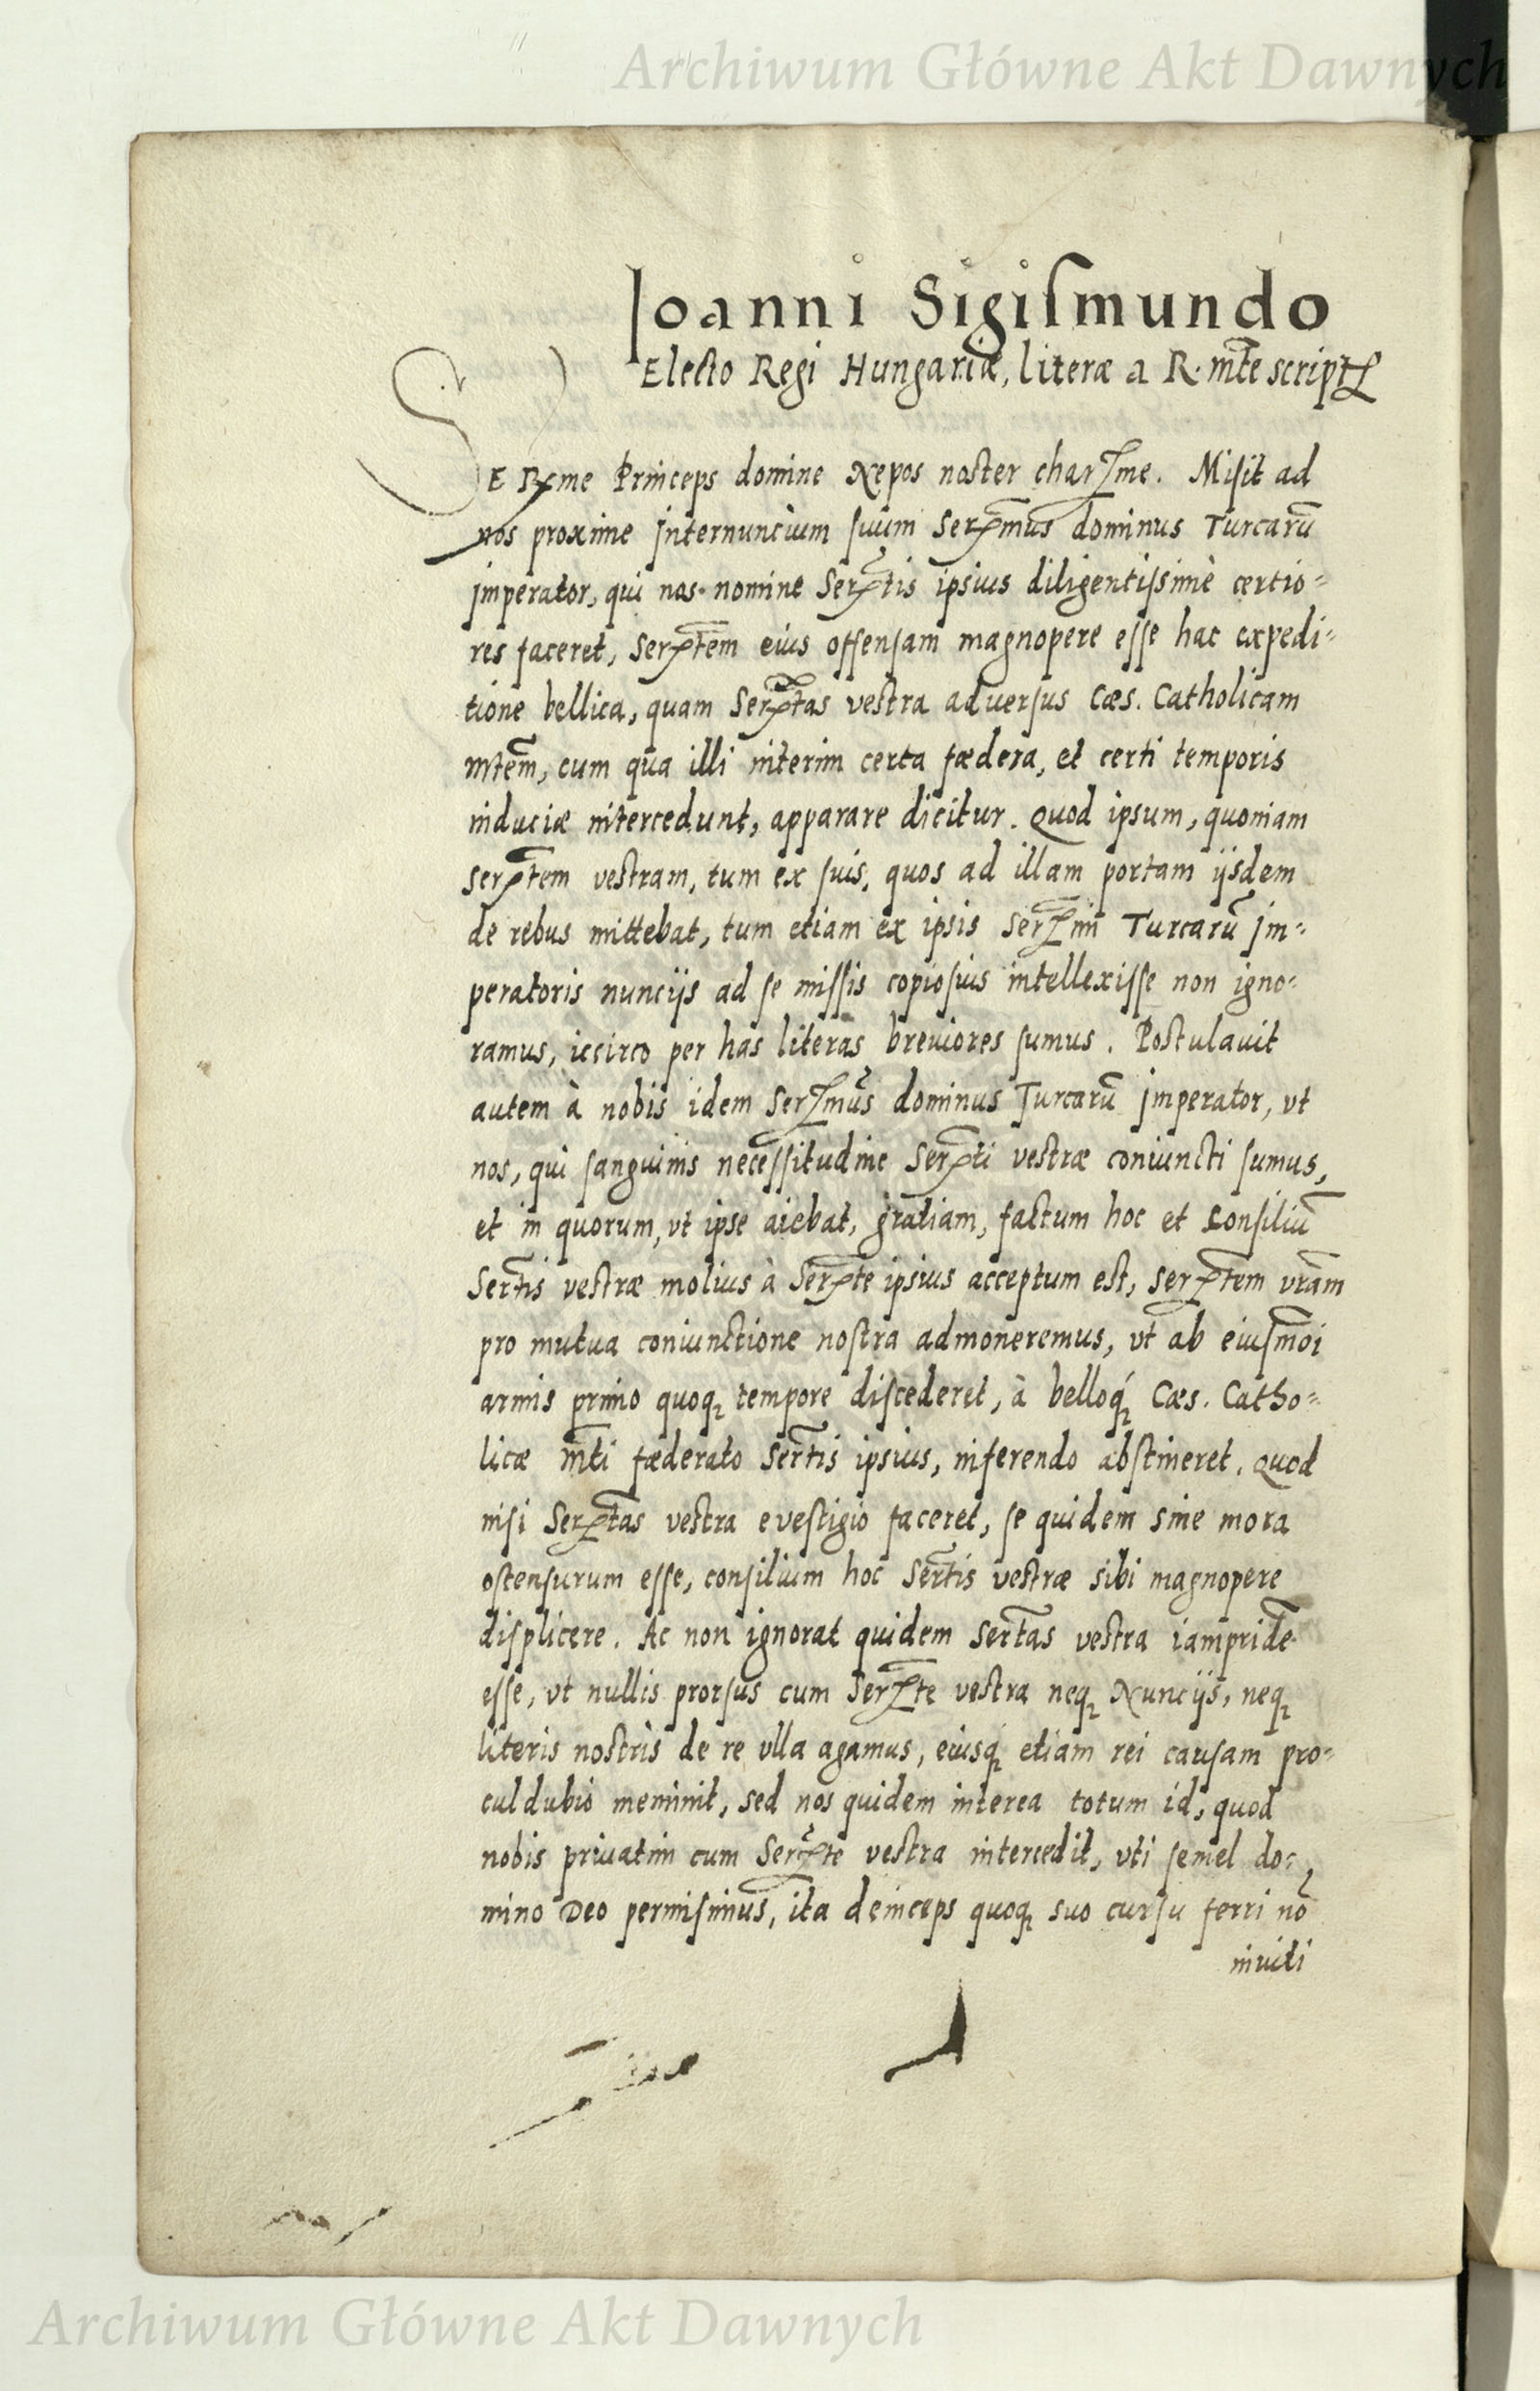 Archiwum Główne Akt Dawnych
Ioanni Sigismundo
Electo Regi Hungariæ, literæ a R. mte scriptę
SERxme Princeps domine Nepos noster charxme. Misit ad
nos proxime internuncium suum Serxmus dominus Turcarū
imperator, qui nos nomine Serxtis ipsius diligentissimè certio=
res faceret, Serxtem eius offensam magnopere esse hac expedi=
tione bellica, quam Serxtas vestra aduersus Cæs. Catholicam
mtem, cum qua illi interim certa fædera, et certi temporis
induciæ intercedunt, apparare dicitur. Quod ipsum, quoniam
serxtem vestram, tum ex suis, quos ad illam portam ijsdem
de rebus mittebat, tum etiam ex ipsis Serxmi Turcarū Im=
peratoris nuncijs ad se missis copiosius intellexisse non igno=
ramus, iccirco per has literas breuiores sumus. Postulauit
autem à nobis idem Serxmus dominus Turcarū Imperator, vt
nos, qui sanguinis necessitudine Serxti vestræ coniuncti sumus,
et in quorum, vt ipse aiebat, gratiam, factum hoc et Consiliū
Sertis vestræ molius à Serxte ipsius acceptum est, serxtem vram
pro mutua coniunctione nostra admoneremus, vt ab eiusmoi
armis primo quoq; tempore discederet, à belloq́; Cæs. Catho=
licæ mti fæderato Sertis ipsius, inferendo abstineret. Quod
nisi Serxtas vestra evestigio faceret, se quidem sine mora
ostensurum esse, consilium hoc Sertis vestræ sibi magnopere
displicere. Ac non ignorat quidem Sertas vestra iampridē
esse, vt nullis prorsus cum Serxte vestra neq; Nuncijs, neq;
literis nostris de re vlla agamus, eiusq́; etiam rei causam pro=
culdubio meminit, sed nos quidem interea totum id, quod
nobis priuatim cum Serxte vestra intercedit, vti semel do=
mino Deo permisimus, ita deinceps quoq; suo cursu ferri nō
inuiti
Archiwum Główne Akt Dawnych